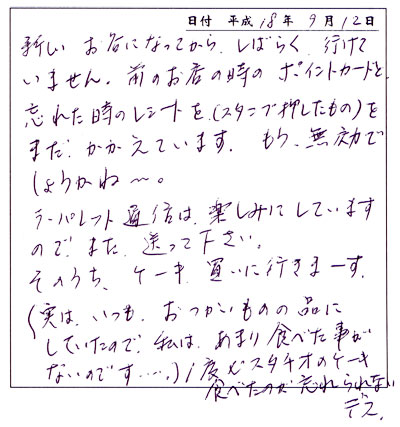 日付 平成18年9月12日
新しい お店になってから、しばらく 行けて
いません。前のお店の時の ポイントカードと
忘れた時のレシートを、(スタンプ押したもの)を
まだ かかえています。もう、無効で
しょうかね〜。
ラ・パレット通信は、楽しみにしています
ので、また 送って下さい。
そのうち、ケーキ 買いに行きまーす。
(実は、いつも、おつかいものの品に
していたので、私は、あまり食べた事が
ないのです・・・・。)1度ピスタチオのケーキ
食べたのが忘れられない
デス。